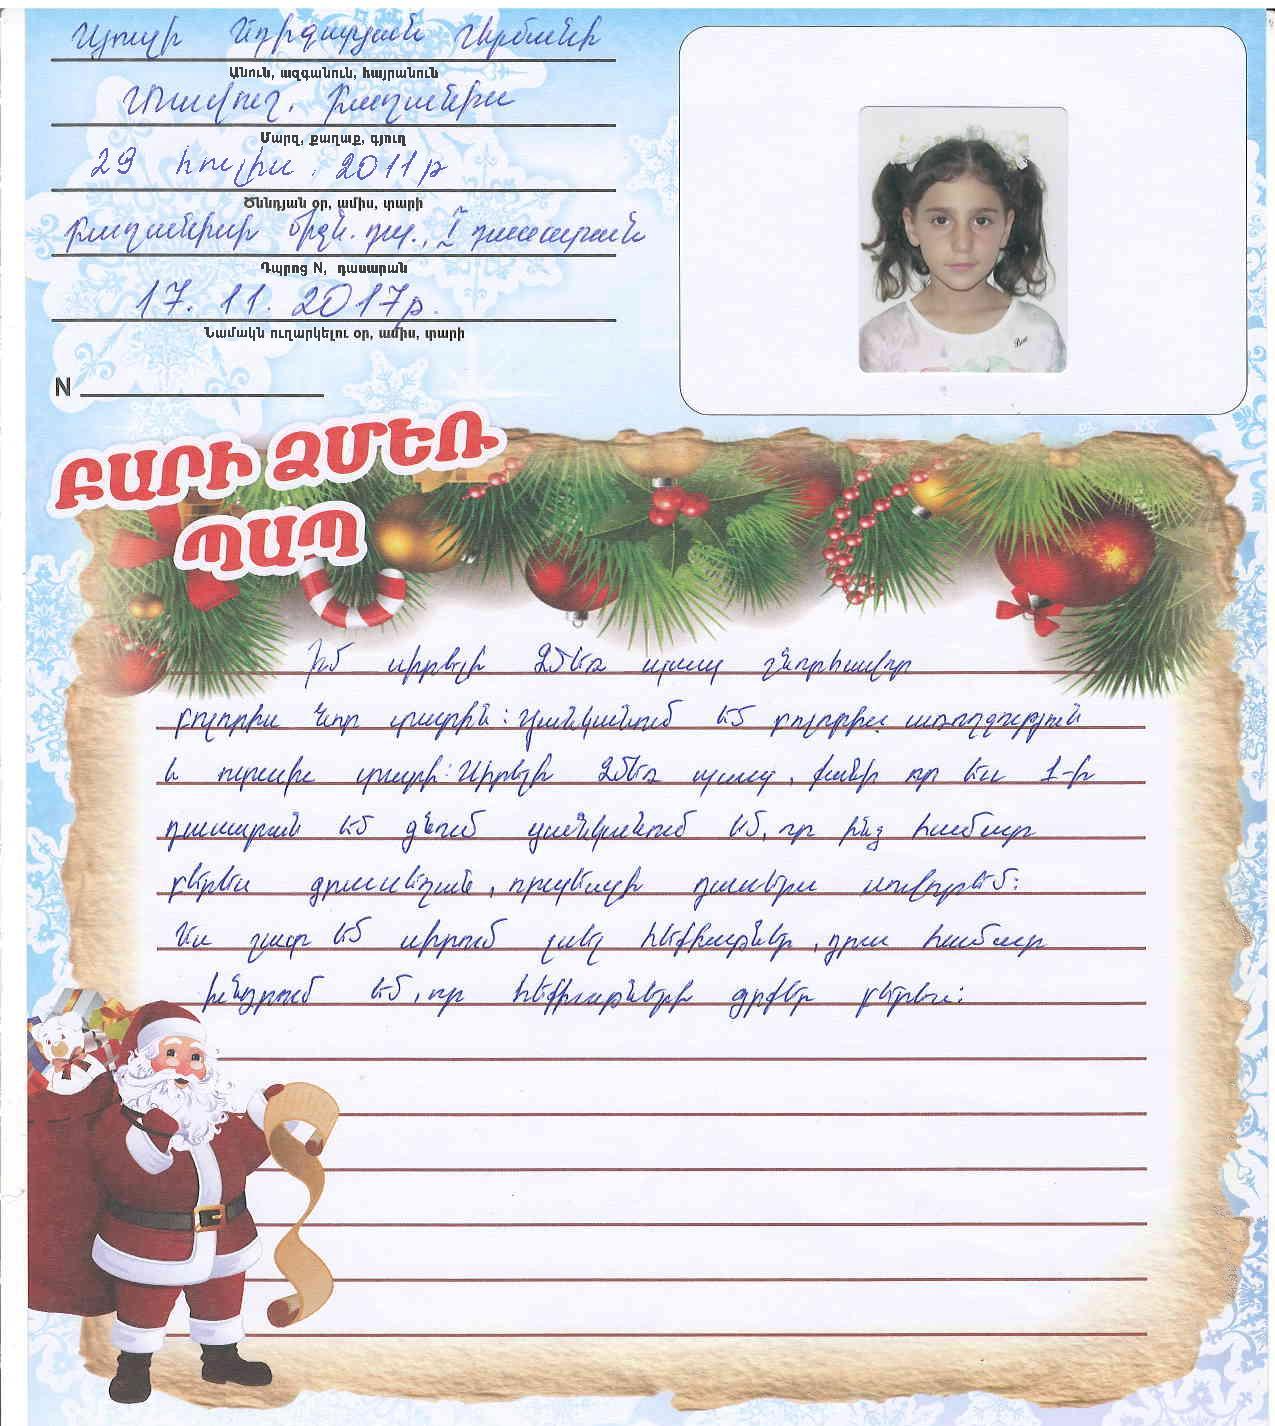 Անուն, ազգանուն, հայրանուն
Մարզ, քաղաք, գյուղ
29 հուլիս, 2011թ
Ծննդյան օր, ամիս, տարի
միջն. դպ., I դասարան
Դպրոց N, դասարան
17. 11. 2017թ.
Նամակն ուղարկելու օր, ամիս, տարի
N
ԲԱՐԻ ՁՄԵՌ
ՊԱՊ
Իմ սիրելի Ձմեռ պապ շնորհավոր
բոլորիս Նոր տարին: Ցանկանում եմ բոլորիս առողջություն
և ուրախ տարի: Սիրելի Ձմեռ պապ, քանի որ ես 1-ին
դասարան եմ գնում ցանկանում եմ, որ ինձ համար
բերես գրասեղան, որպեսզի դասերս սովորեմ:
Ես շատ եմ սիրում լսել հեքիաթներ, դրա համար
խնդրում եմ, որ հեքիաթների գրքեր բերես: